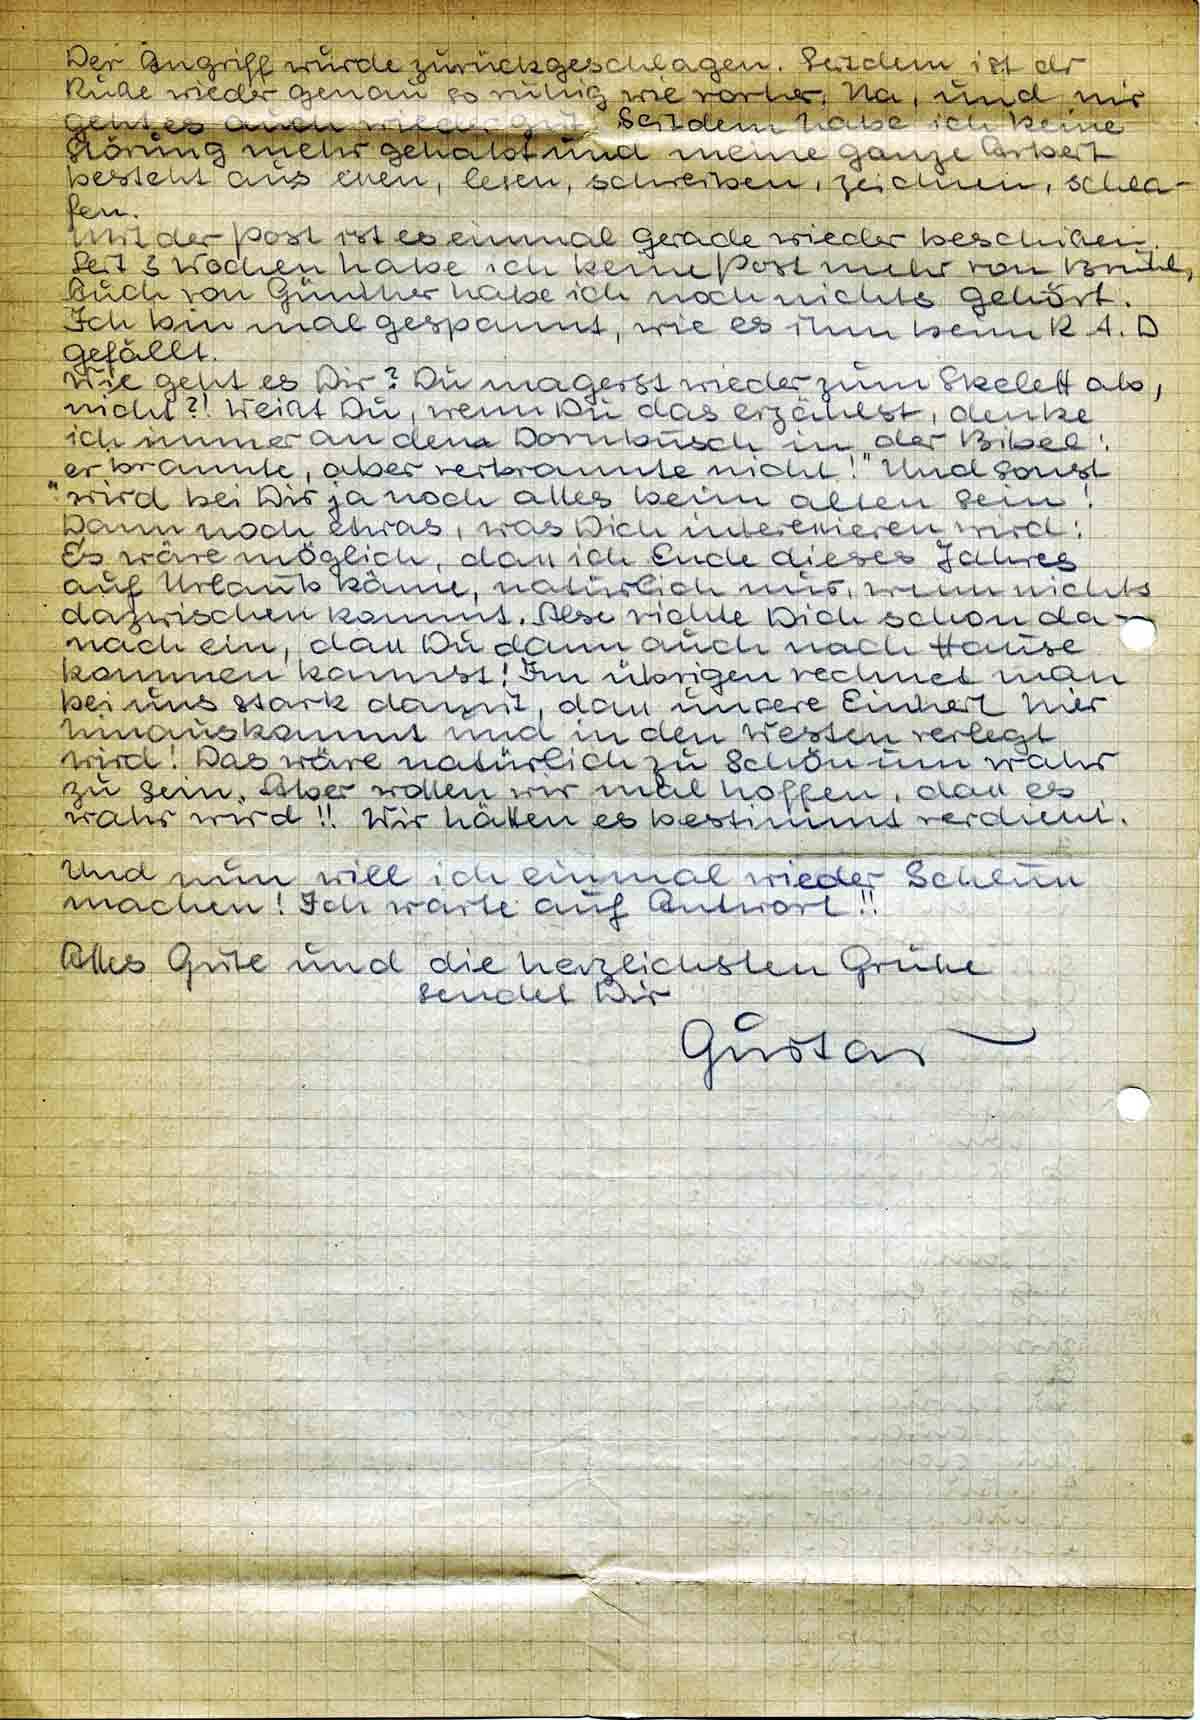 Der Angriff wurde zurückgeschlagen. Seitdem ist dr
Ruhe wieder genau so ruhig wie vorher. Na, und mir
geht es auch wieder gut. Seitdem habe ich keine
Störung mehr gehabt und meine ganze Arbeit
besteht aus essen, lesen, schreiben, zeichnen, schla-
fen.
Mit der Post ist es einmal gerade wieder beschissen.
Seit 3 Wochen habe ich keine Post mehr von Brühl,
Auch von Günther habe ich noch nichts gehört.
Ich bin mal gespannt, wie es ihm beim R.A.D
gefällt.
Wie geht es Dir? Du magerst wieder zum Skelett ab,
nicht?! Weißt Du, wenn Du das erzählst, denke
ich immer an den Dornbusch in der Bibel:
"er brannte, aber verbrannte nicht!" Und sonst
wird bei Dir ja noch alles beim alten sein!
Dann noch etwas, was Dich interessieren wird:
Es wäre möglich, dass ich Ende dieses Jahres
auf Urlaub käme, natürlich nur, wenn nichts
dazwischen kommt. Also richte Dich schon da-
nach ein, dass Du dann auch nach Hause
kommen kannst! Im übrigen rechnet man
bei uns stark damit, dass unsere Einheit hier
hinauskommt und in den Westen verlegt
wird! Das wäre natürlich zu schön um wahr
zu sein. Aber wollen wir mal hoffen, dass es
wahr wird!! Wir hätten es bestimmt verdient.
Und nun will ich einmal wieder Schluss
machen! Ich warte auf Antwort!!
Alles Gute und die herzlichsten Grüße
sendet Dir
Gustav